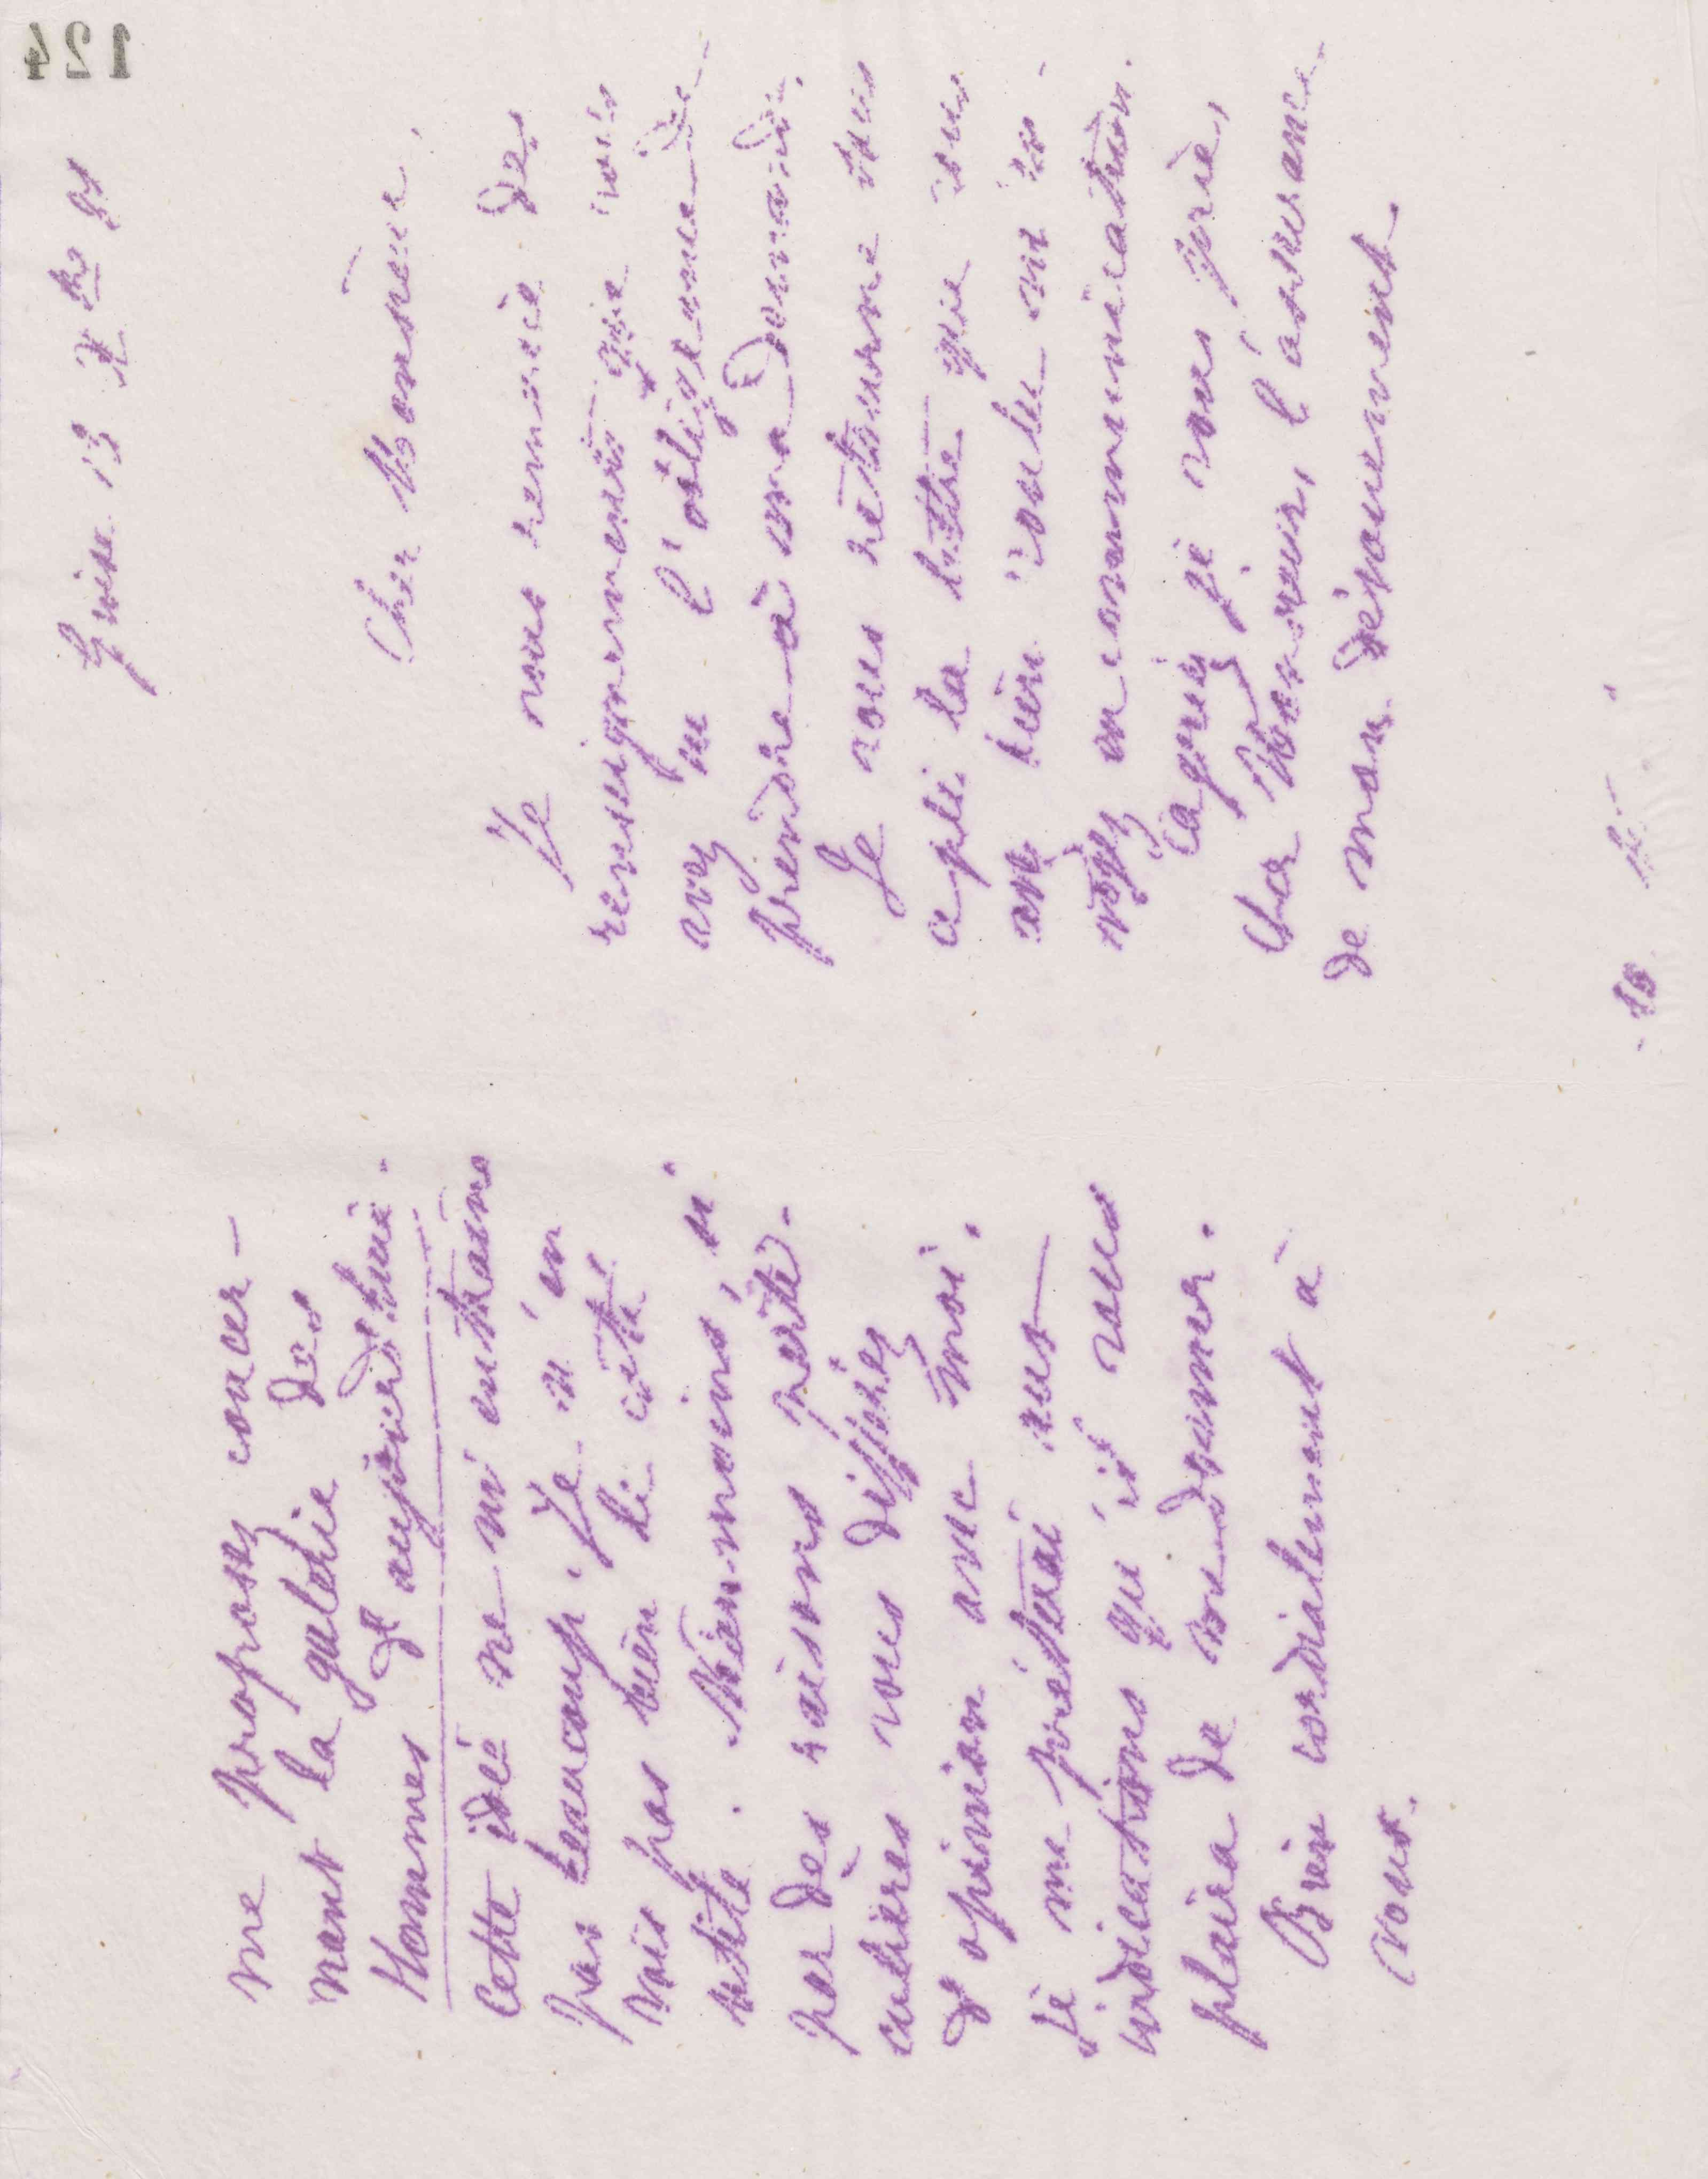 124
me proposez concer-
nant la galerie des
Hommes d'aujourd'hui.
Cette idée ne m'entraine
pas beaucoup. Je n'en
vois pas bien li coté
utile. Néanmoins, si
par des raisons parti-
culières vous différiez
d'opinion avec moi,
je me prêterai aux
indications qu'il vous
plaira de me donner.
Bien cordialement à
vous.
Guise 13 Xbre 91
Cher Monsieur,
Je vous remercie des
renseignements que vous
avez eu l'obligeance de
prendre à ma demande.
Je vous retourne sous
ce pli la lettre que vous
avez bien voulu me en-
voyer en communication.
Agréez je vous prie,
Cher Monsieur, l'assurance
de mon dévouement